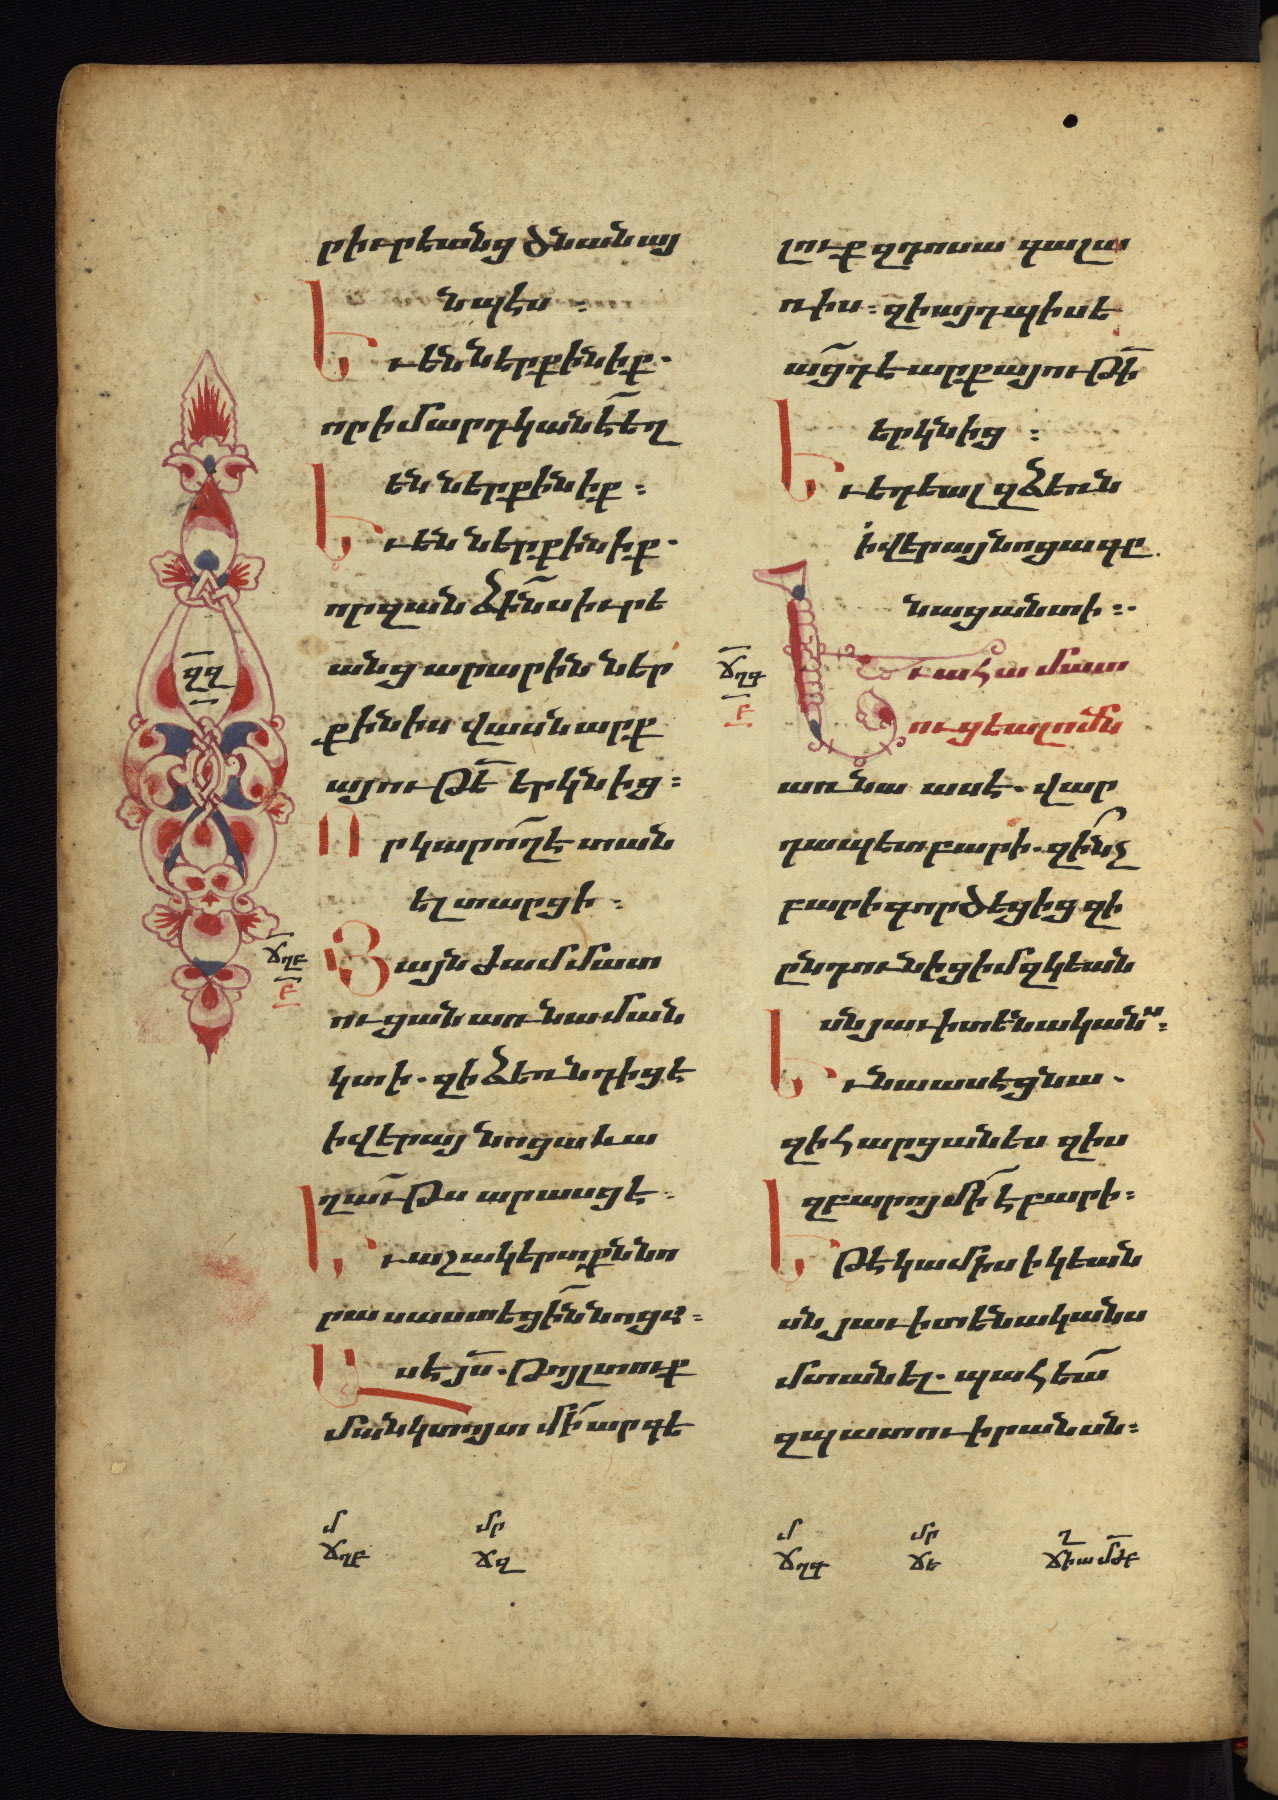 րիւրեանց ծնան այ
նպէս ։
Եւ են ներքինիք.
որ ի մարդկանէ եղ
են ներքինիք ։
Եւ են ներքինիք.
որ զանձինս իւրե
անց արարին ներ
քինիս վասն արք
այութե երկնից ։
Որ կարողէ տան
ել տարցի ։
Յայնժամ մատ
ուցան առ նա ման
կտի. զի ձեռն դիցէ
ի վերայ նոցա եւ ա
ղաւթս արասցէ.
Եւ աշակերտքն նո
րա սաստեցին նոցա ։
Ասէ յս. Թոյլ տուք
մանկտոյտ մի արգե
զզ
ճղբ
բ
մ մր
ճղբ ճզ
լուք զդոսա գալ ա
ռ իս ։ զի այդպիսե
աց դ է արքայութի
երկնից ։
Եւ եդեալ զձեռն
ի վերայ նոցա գը
նաց անտի ։
Եւ ահա մատ
ուցեալ ոմն
առ նա ասէ. վար
դապետ բարի. զինչ
բարի գործեցից զի
ընդունիցիմ զկեան
սն յաւիտենականս ։
Եւ նա ասէ ցնա.
զի հարցանես զիս
զբարոյ մի է բարի ։
Եթե կամիս ի կեան
սն յաւիտենականս
մտանել. պահեա
զպատուիրանսն ։
ճղգ
բ
մ մր ղ
ճղգ ճե